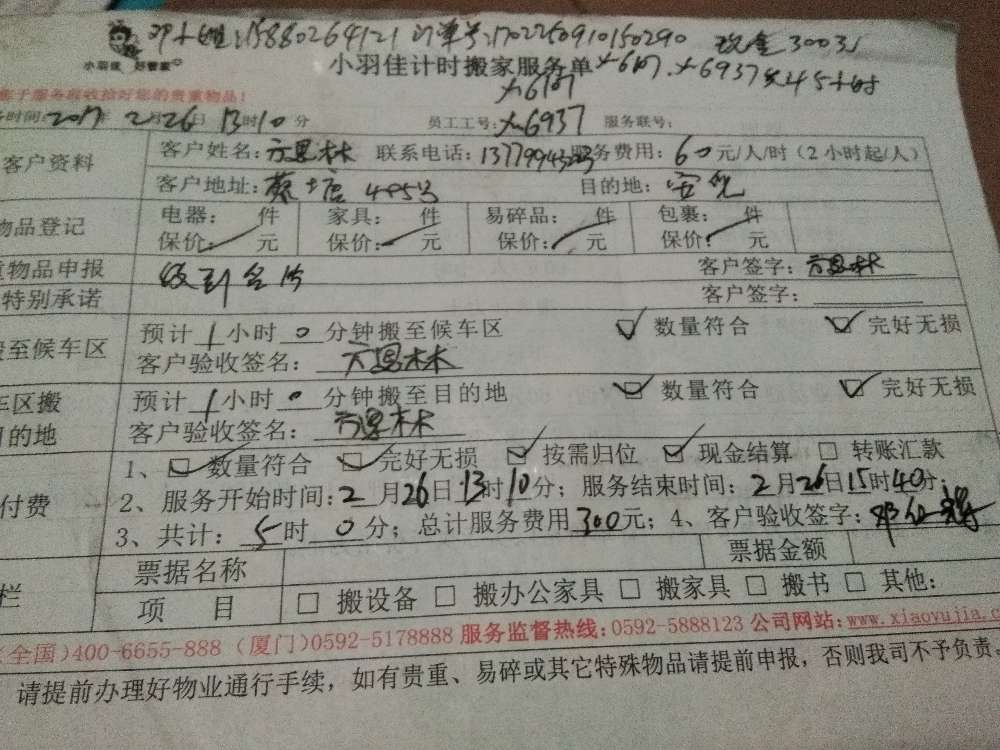 邓小姐:15880264121 订单号:1702260910150290 现金300元
小羽佳 好管家
小羽佳计时搬家服务单 x6187.x6937共45小时
x6187
时间:2017年2月26日13时10分 员工工号:x6937 服务联号:
客户资料 客户姓名:方思林 联系电话: 服务费用:60元/人/时(2小时起/人)
客户地址:蔡塘495号 目的地:安兜
物品登记 电器: 件 家具: 件 易碎品: 件 包裹: 件
保价: 元 保价: 元 保价: 元 保价: 元
物品申报 收到名片 客户签字:方思林
特别承诺 客户签字:
至候车区 预计1小时0分钟搬至候车区 数量符合 完好无损
客户验收签名:方思林
车区搬 预计1小时0分钟搬至目的地 数量符合 完好无损
目的地 客户验收签名:方思林
付费 1、数量符合 完好无损 按需归位 现金结算 转账汇款
2、服务开始时间:2月26日13时10分;服务结束时间:2月26日15时40分;
3、共计:5时0分;总计服务费用300元;4、客户验收签字:
栏 票据名称 票据金额
项 目 搬设备 搬办公家具 搬家具 搬书 其他:
(全国)400-6655-888 (厦门)0592-5178888 服务监督热线:0592-5888123 公司网站:www.xiaoyujia.c
请提前办理好物业通行手续,如有贵重、易碎或其它特殊物品请提前申报,否则我司不予负责。